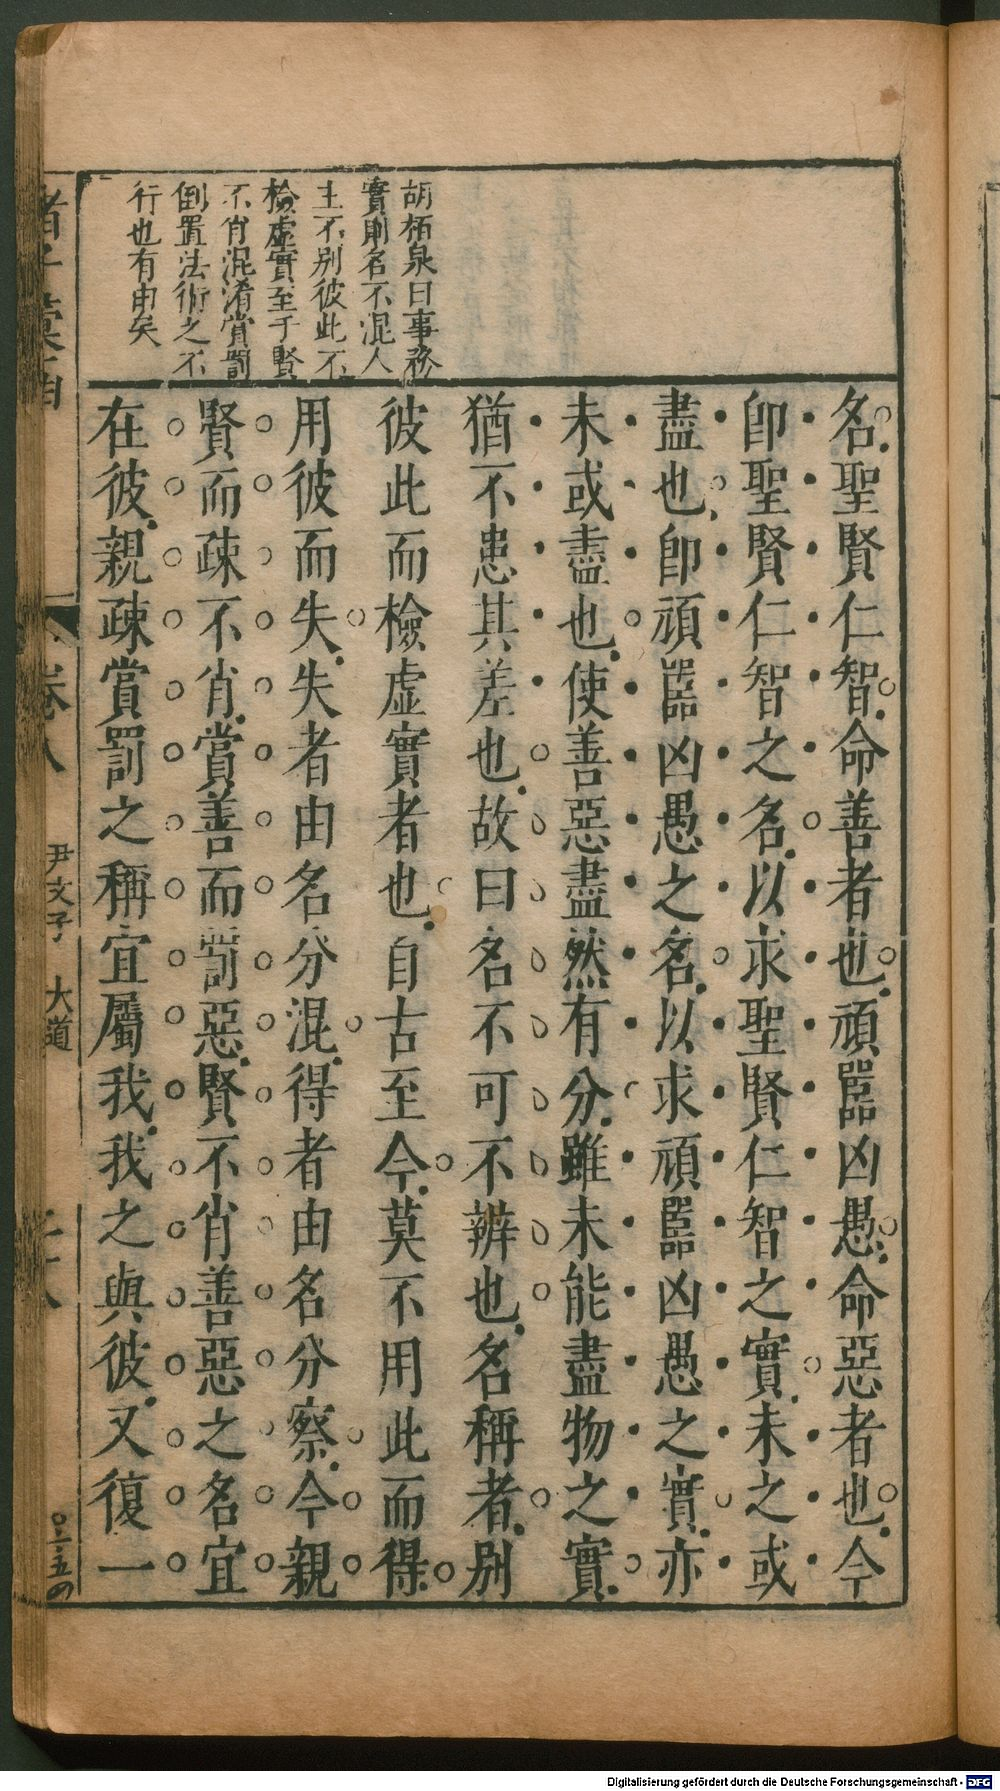 胡栢泉曰事務
實則名不混人
主不別彼此不
檢虛實至于賢
不肖混淆賞罰
倒置法術之不
行也有由矣
名聖賢仁智命善者也頑嚚凶愚命惡者也今
卽聖賢仁智之名以求聖賢仁智之實未之或
盡也卽頑嚚凶愚之名以求頑嚚凶愚之實亦
未或盡也使善惡盡然有分雖未能盡物之實
猶不患其差也故曰名不可不辨也名稱者別
彼此而檢虛實者也自古至今莫不用此而得
用彼而失失者由名分混得者由名分察今親
賢而疎不肖賞善而罰惡賢不肖善惡之名宜
在彼親疎賞罰之稱宜屬我我之與彼又復一
卷八
尹文子 大道
Digitalisierung gefördert durch die Deutsche Forschungsgemeinschaft - DFG